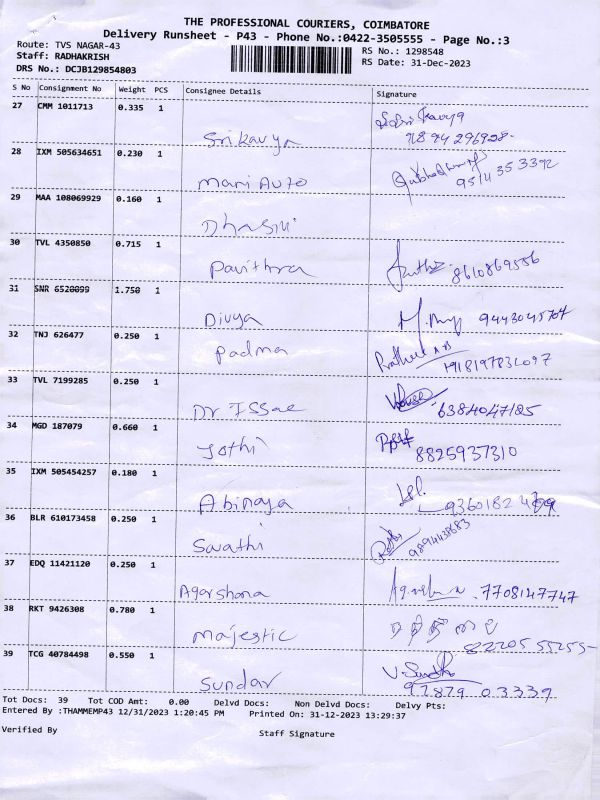 THE PROFESSIONAL COURIERS, COIMBATORE
Delivery Runsheet - P43 - Phone No.:0422-3505555 - Page No.:3
Route: TVS NAGAR-43 RS No.: 1298548
Staff: RADHAKRISH RS Date: 31-Dec-2023
DRS No.: DCJB129854803
S No Consignment No Weight PCS Consignee Details Signature
27 CMM 1011713 0.335 1
Srikavya
28 IXM 505634651 0.230 1
Mari Auto 9514353392
29 MAA 108069929 0.160 1
Dhasini
30 TVL 4350850 0.715 1
Pavithra 8610869556
31 SNR 6520099 1.750 1
Divya 9443045704
32 TNJ 626477 0.250 1
Padma
33 TVL 7199285 0.250 1
Dr Issac 6384047185
34 MGD 187079 0.660 1
Jothi 8825937310
35 IXM 505454257 0.180 1
Abinaya
36 BLR 610173458 0.250 1
Swathi 9894438683
37 EDQ 11421120 0.250 1
Agarshana 7708147747
38 RKT 9426308 0.780 1
Majestic 82205 55255
39 TCG 40784498 0.550 1
Sundar 97879 03339
Tot Docs: 39 Tot COD Amt: 0.00 Delvd Docs: Non Delvd Docs: Delvy Pts:
Entered By :THAMMEMP43 12/31/2023 1:20:45 PM Printed On: 31-12-2023 13:29:37
Verified By Staff Signature